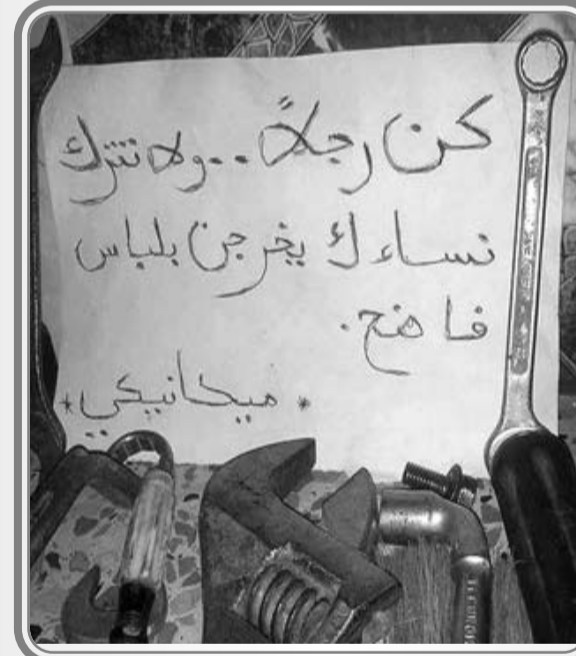 كن رجلاً..ولا تترك
نساءك يخرجن بلباس
فاضح.
* ميكانيكي *